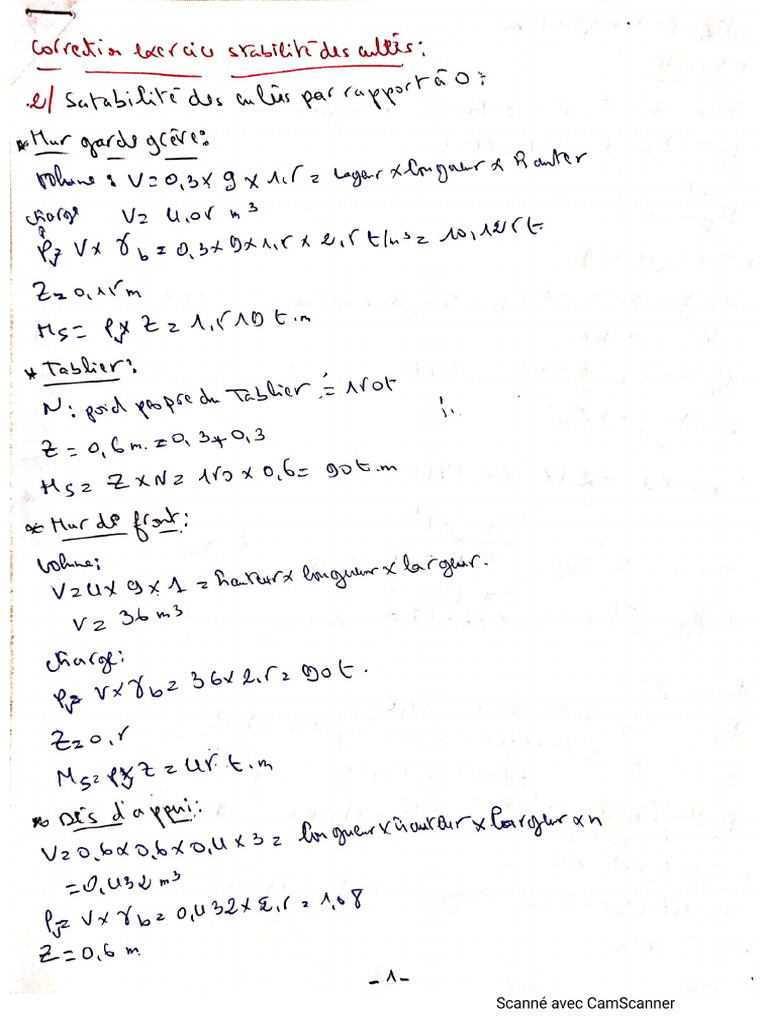 Correction exercice stabilité des culées:
2/ Satabilité des culées par rapport à O:
* Mur garde grève:
Volume: V=0,3 x 9 x 1,5 = largeur x longueur x Hauter
charge V= 4,05 m³
P= V x γb = 0,3 x 9 x 1,5 x 2,5 t/m³ = 10,125 t
Z= 0,15 m
Ms= P x Z = 1,519 t.m
* Tablier:
N: poid propre du Tablier = 150t
Z = 0,6 m. = 0,3+0,3
Ms= Z x N= 150 x 0,6= 90t.m
* Mur de front:
Volume:
V=4 x 9 x 1 = hauteur x longueur x largeur.
V= 36 m³
charge:
P= V x γb= 36 x 2,5= 90t.
Z= 0,5
Ms= P x Z = 45 t.m
* Dès d'appui:
V=0,6 x 0,6 x 0,4 x 3 = longueur x hauteur x largeur x n
=0,432 m³
P= V x γb= 0,432 x 2,5= 1,08
Z=0,6 m
-1-
Scanné avec CamScanner